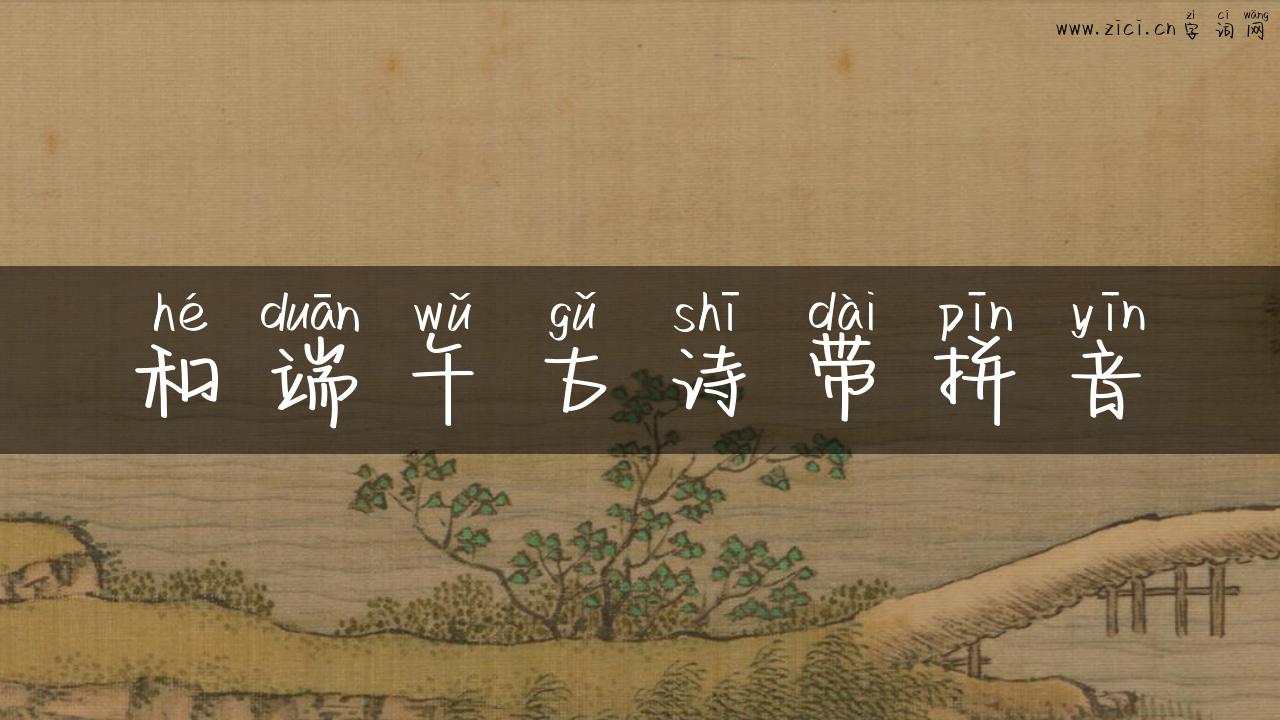 zì cí wǎng
www.zici.cn 字 词 网
hé duān wǔ gǔ shī dài pīn yīn
和 端 午 古 诗 带 拼 音